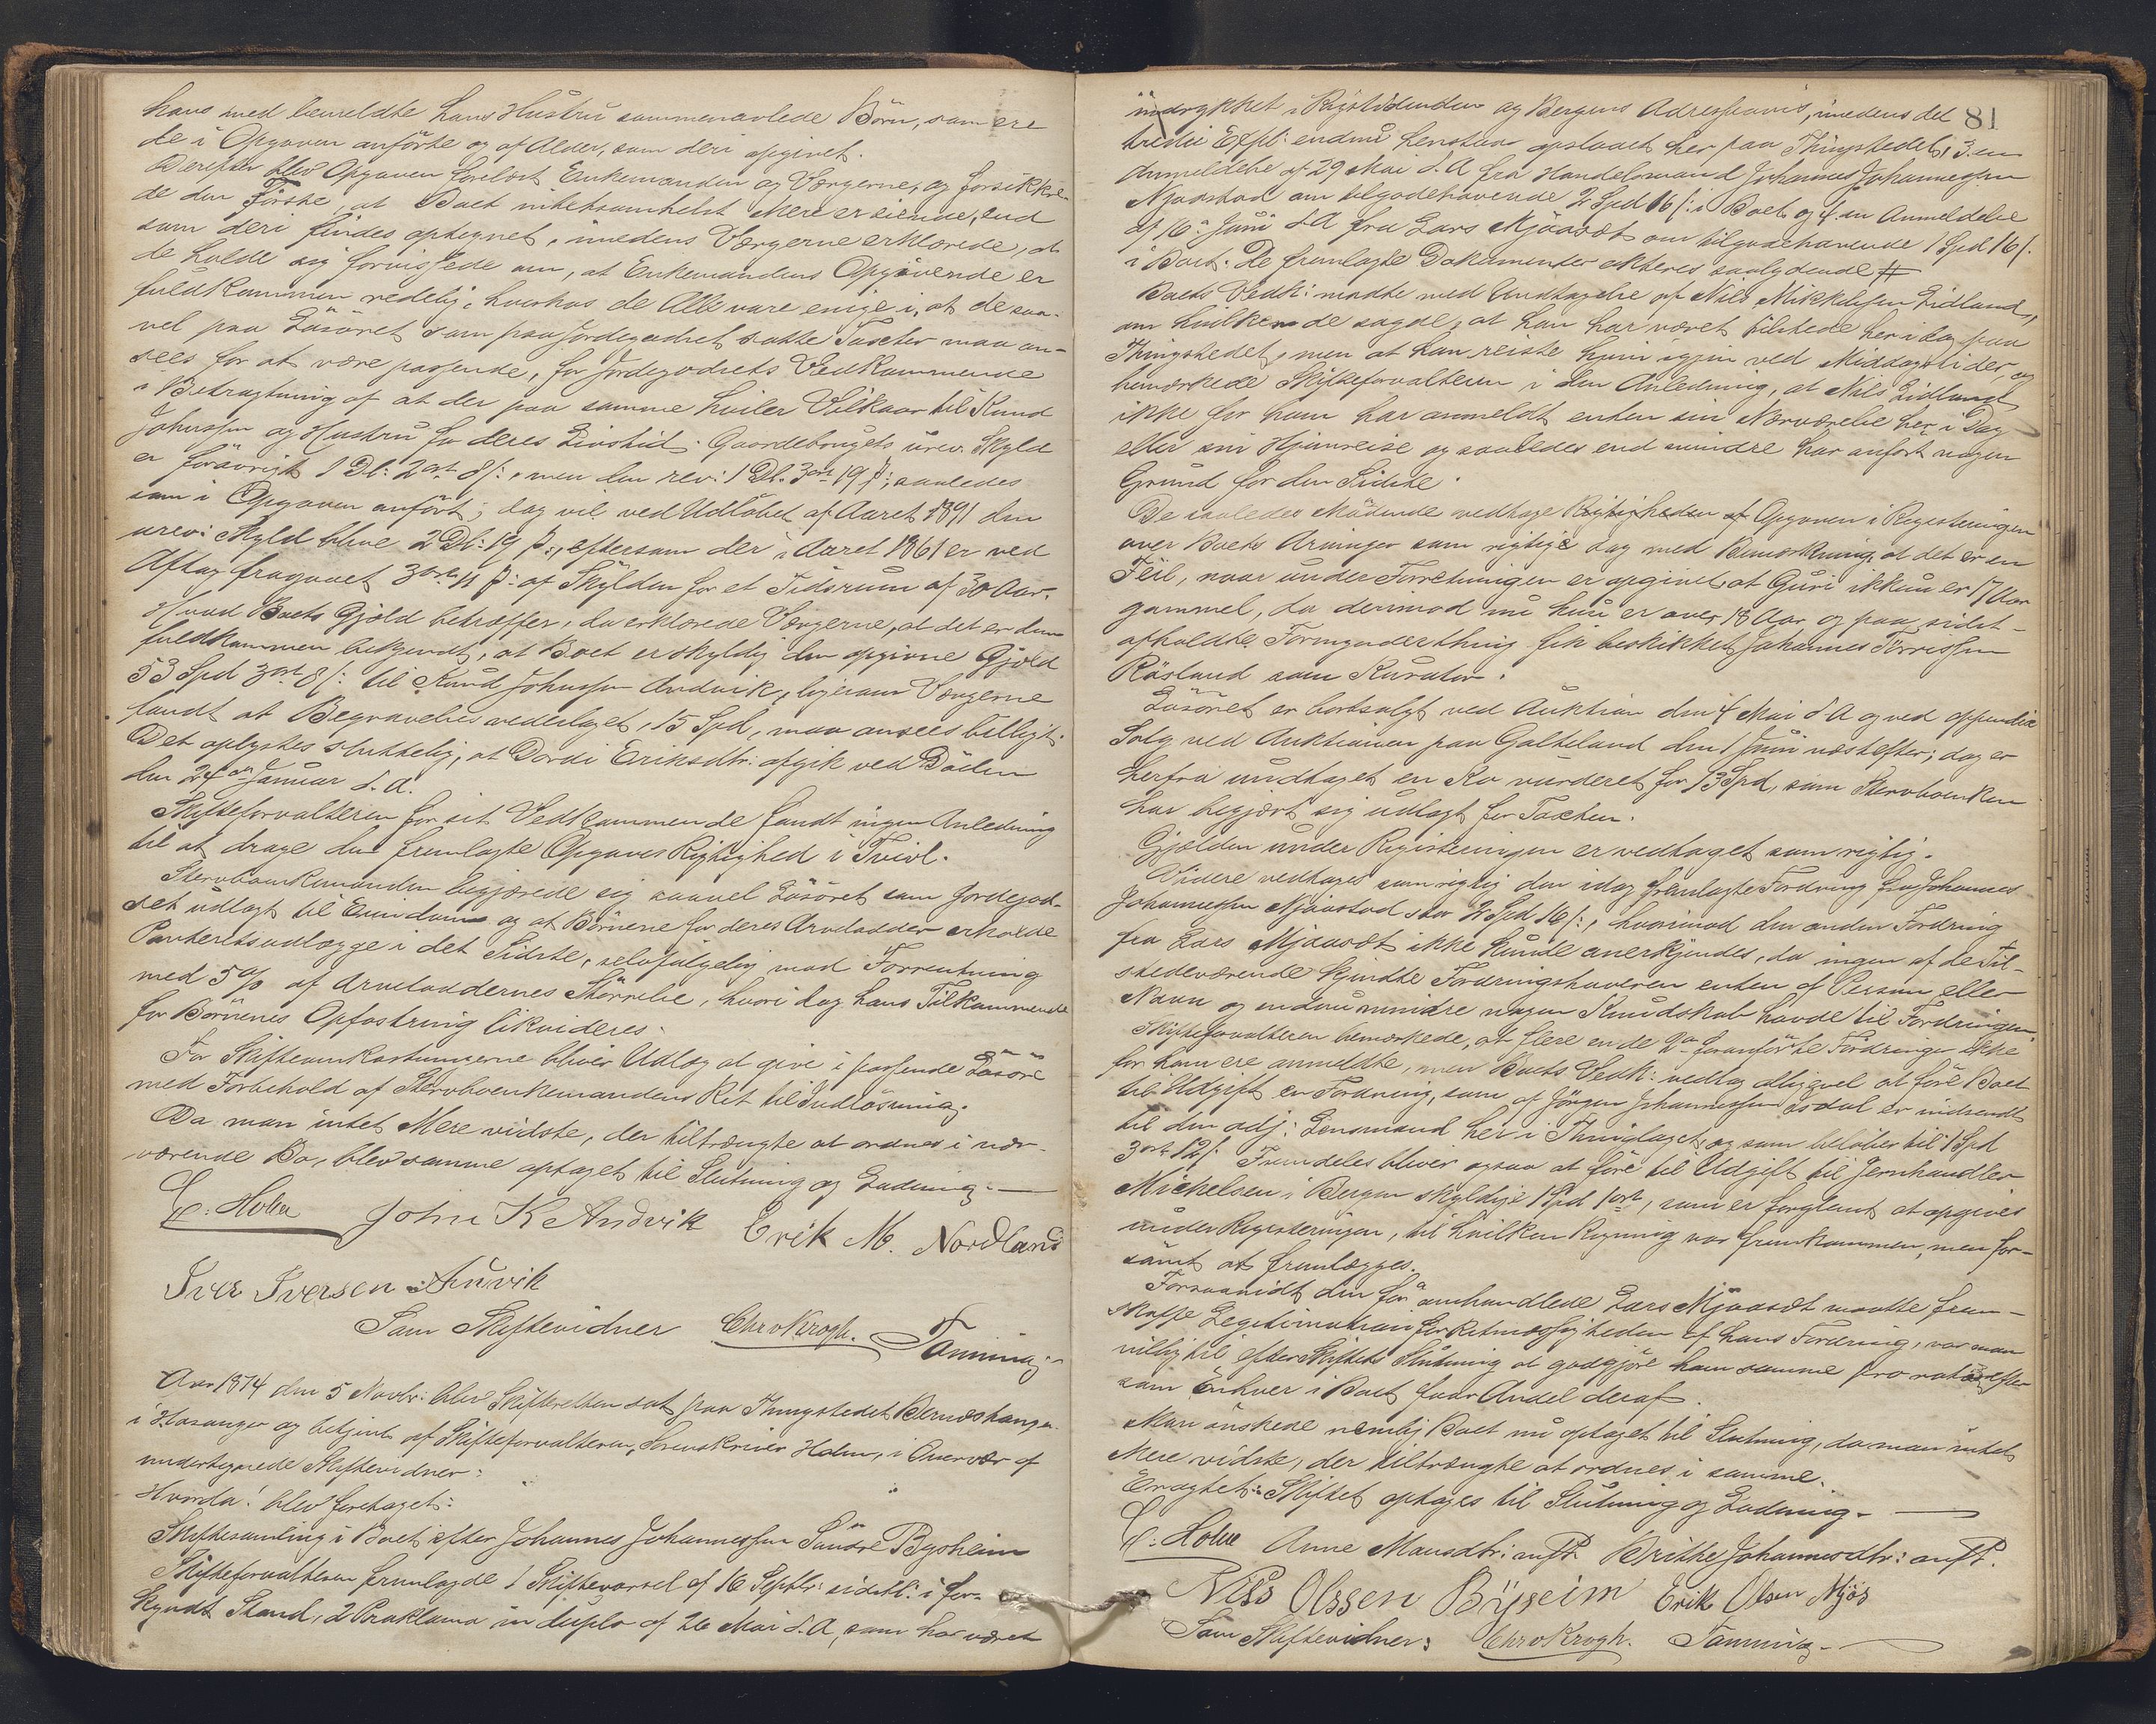 hans med bemeldte hans Hustru sammenavlede Börn, som ere
de i Opgaven anförte og af Alder, som deri opgivet.
Derefter blev Opgaven forelæst Enkemanden og Værgerne, og forsikkre-
de den Förste, at Boet intetsomhelst Mere er eiende, end
som deri findes optegnet, imedens Værgerne erklærede, at
de holde sig forvissede om, at Enkemandens Opgivende er
fuldkommen redelig, hvorhos de Alle vare enige i, at de saa-
vel paa Lösöret som paa Jordegodset satte Taxter maa an-
sees for at være passende, for Jordegodsets Vedkommende
i Betragtning af at der paa samme hviler Vilkaar til Knud
Johnssen og Hustru for deres Livstid. Gaardebrugets urev. Skyld
er forövrigt 1 Dl: 2ort 8 s:, men den rev: 1 Dl. 3ort 19 s:, saaledes
som i Opgaven anfört; dog vil ved Udlöbet af Aaret 1891 den
urev: Skyld blive 2 Dl: 19 s:, eftersom der i Aaret 1861 er ved
Aftag fragaaet 3ort 11 s: af Skylden for et Tidsrum af 30 Aar.
Hvad Boets Gjæld betræffer, da erklærede Værgerne, at det er dem
fuldkommen bekjendt, at Boet er skyldig den opgivne Gjæld
53 Spd 3ort 8 s: til Knud Johnssen Andvik, ligesom Værgerne
fandt at Begravelsesvederlaget, 15 Spd, maa ansees billigt.
Det oplystes sluttelig, at Dordi Eriksdtr: afgik ved Döden
den 24de Januar d. A.
Skifteforvalteren for sit Vedkommende fandt ingen Anledning
til at drage den fremlagte Opgaves Rigtighed i Tvivl.
Stervboenkemanden begjærede sig saavel Lösöret som Jordegod-
set udlagt til Eiendom og at Börnene for deres Arvelodder erholde
Panteretsudlægge i det Sidste, selvfölgelig mod Forrentning
med 5 % af Arveloddernes Störrelse, hvori dog hans Tilkommende
for Börnenes Opfostring likvideres.
For Skifteomkostningerne bliver Udlæg at give i passende Lösöre
med Forbehold af Stervboenkemandens Ret til Indlösning.
Da man intet Mere vidste, der tiltrængte at ordnes i nær-
værende Bo, blev samme optaget til Slutning og Lodning. —
C: Holm John K Andvik Erik M. Nordland
Iver Iversen Andvik
Som Skiftevidner Chr v Krogh. Tanning.
Aar 1874 den 5 Novbr: blev Skifteretten sat paa Thingstedet Bernæshangen
i Hosanger og betjent af Skifteforvalteren, Sorenskriver Holm, i Overvær af
undertegnede Skiftevidner:
Hvorda! blev foretaget:
Skiftesamling i Boet efter Johannes Johannessen Söndre Bysheim
Skifteforvalteren fremlagde 1 Skiftevarsel af 16 Septbr: sidstl: i for-
kyndt Stand, 2 Proklama in duplo af 26 Mai d. A, som har været
81
indrykket i Rigstidenden og Bergens Adresseavis, imedens det
tredie Expl: endnu henstaar opslaaet her paa Thingstedet, 3. en
Anmeldelse af 29 Mai d. A fra Handelsmand Johannes Johannessen
Njaastad om tilgodehavende 2 Spd 16 s: i Boet og 4. en Anmeldelse
af 16 Juni d A fra Lars Mjaasdt om tilgodehavende 1 Spd 16 s:
i Boet. De fremlagte Dokumenter akteres saalydende #
Boets Vedk: mödte med Undtagelse af Nils Mikkelsen Eidland,
om hvilken de sagde, at han har været tilstede her i dag paa
Thingstedet, men at han reiste hjem igjen ved Middagstider, og
bemærkede Skifteforvalteren i den Anledning, at Nils Eidland
ikke for ham har anmeldt enten sin Nærværelse her i Dag
eller sin Hjemreise og saaledes end mindre har anfört nogen
Grund for den Sidste.
De saaledes Mödende vedtoge Rigtigheden af Opgaven i Registeringen
over Boets Arvinger som rigtige dog med Bemærkning, at det er en
Feil, naar under Forretningen er opgivet at Guri ikkun er 17 Aar
gammel, da derimod nu hun er over 18 Aar og paa sidst-
afholdte Formynderthing fik beskikket Johannes Törrissen
Rösland som Kurator.
Lösöret er bortsolgt ved Auktion den 4 Mai d A og ved appendix
Salg ved Auktionen paa Galteland den 1 Juni næstefter; dog er
herfra undtaget en Ko vurderet for 13 Spd, som Stervboenken
har begjært sig udlagt for Taxten.
Gjælden under Registeringen er vedtaget som rigtig.
Videre vedtages som rigtig den idag fremlagte Fordring fra Johannes
Johannessen Njaastad stor 2 Spd 16 s:, hvorimod den anden Fordring
fra Lars Mjaasdt ikke kunde anerkjendes, da ingen af de Til-
stedeværende kjendte Fordringshaveren enten af Person eller
Navn og endnu mindre nogen Kundskab havde til Fordringen.
Skifteforvalteren bemærkede, at flere end de 2de foranförte Fordringer ikke
for ham ere anmeldte, men Boets Vedk: vedtog alligevel at före Boet
til Udgift en Fordring, som af Jörgen Johannessen Isdal er indsendt
til den adj: Lensmand her i Thinglaget, og som belöber til 1 Spd
3ort 12 s. Fremdeles bliver ogsaa at före til Udgift til Jernhandler
Michelsen i Bergen skyldige 1 Spd 1ort, som er forglemt at opgives
under Registeringen, til hvilken Regning var fremkommen, men for-
sömt at fremlægges.
Forsaavidt den foromhandlede Lars Mjaasdt maatte frem-
skaffe Legitimation for Retmæssigheden af hans Fordring, var man
villig til efter Skiftets Slutning at godgjöre ham samme pro rata efter
som Enhver i Boet faar Andel deraf.
Man önskede nemlig Boet nu optaget til Slutning, da man intet
Mere vidste, der tiltrængte at ordnes i samme.
Eragtet: Skiftet optages til Slutning og Lodning. —
C: Holm Anne Monsdtr: m f P. Brithe Johannesdtr: m f P.
Nils Olssen Byseim Erik Olsen Mjös
Som Skiftevidner: Chr v Krogh. Tanning. —